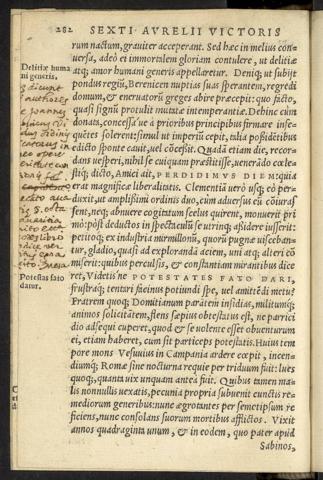 282 SEXTI AVRELII VICTORIS
rum nactum, grauiter acceperant. Sed hæc in melius con-
uersa, adeò ei immortalem gloriam contulere, ut delitiæ
Delitiæ huma
atq; amor humani generis appellaretur. Deniq; ut subijt
ni generis.
pondus regiũ, Berenicen nuptias suas sperantem, regredi
domum, & eneruatorũ greges abire præcepit: quo facto,
quasi signũ protulit mutatæ intemperantiæ. Dehinc cùm
donata, concessaúe à prioribus principibus firmare inse-
quẽtes solerent: simul ut imperiũ cepit, talia possidẽtibus
edicto sponte cauit, uel cõcessit. Quadã etiam die, recor-
dans uesperi, nihil se cuiquam præstitisse, uenerãdo cœle-
stiq́; dicto, Amici ait, PERDIDIMVS DIEM: quia
erat magnificæ liberalitatis. Clementiã uerò usq; eò per-
duxit, ut amplissimi ordinis duo, cùm aduersus eũ cõiuras
sent, neq; abnuere cogitatum scelus quirent, monuerit pri
mò: pòst deductos in spectaculũ se utrinq; assidere iusserit:
petitoq́; ex industria mirmillonũ, quorũ pugnæ uisebans
tur, gladio, quasi ad explorandã aciem, uni atq; alteri cõ
miserit: quibus perculsis, & constantiam mirantibus dice
ret, Videtis ne POTESTATES FATO DARI,
Potestas fato
datur.
frustraq́; tentari facinus potiundi spe, uel amittẽdi metu?
Fratrem quoq; Domitianum parãtem insidias, militumq́;
animos solicitãtem, flens sæpius obtestatus est, ne parrici
dio adsequi cuperet, quod & se uolente esset obuenturum
ei, etiam haberet, cum sit particeps potestatis. Huius tem
pore mons Vesuuius in Campania ardere cœpit, incen-
diumq́; Romæ sine nocturna requie per triduum fuit: lues
quoq;, quanta uix unquam antea fuit. Quibus tamen ma-
lis nonnullis uexatis, pecunia propria subuenit cunctis re-
mediorum generibus: nunc ægrotantes per semetipsum re
ficiens, nunc consolans suorum mortibus afflictos. Vixit
annos quadraginta unum, & in eodem, quo pater apud
Sabinos,